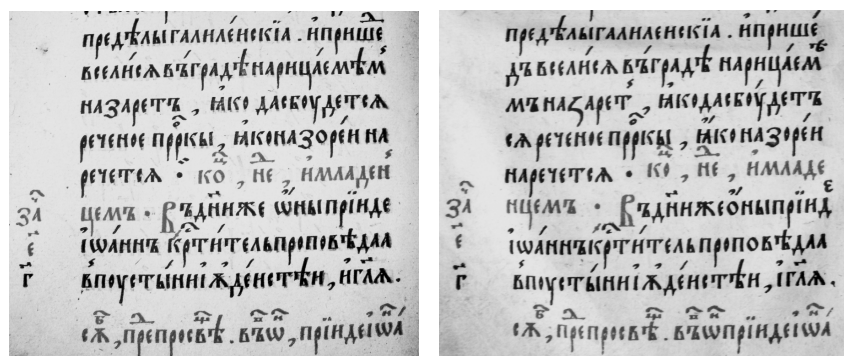 предѣлы галиле́искїа . и҆ прише́д
всели́сѧ въ гра́дѣ нарица́емѣм
назаретъ , ꙗ҆́ко да сбоу́детсѧ
рече́ное прⷪ҇ркы , ꙗ҆́ко назоре́и на
рече́тсѧ . ко҆ⷰ , неⷣ , и҆ младен
цемъ . Въ дн҃и же ѡ҆́ны прїи́де
і҆ѡа́ннъ кр҃ти́тель проповѣ́даа
в пꙋсты́ни і҆ꙋде́истѣи , и҆ гл҃ѧ .
заⷱ҇
є҃
г҃
сѫⷠ , преⷣ просвѣⷳ . въ н҃ѡ , прїи́де і҆ѡа́ⷩ
предѣлы галиле́искїа . и҆ прише́
дъ всели́сѧ въ гра́дѣ нарица́емѣ
мъ назарет , ꙗ҆́ко да сбоу́детъ
сѧ рече́ное прⷪ҇ркы , ꙗ҆́ко назоре́и
нарече́тсѧ . коⷰ , неⷣ , и҆ младе
нцемъ . Въ дн҃и же о҆́ны прїи́де
і҆ѡа́ннъ кр҃ти́тель проповѣ́даа
в поусты́ни і҆ꙋде́истѣи , і҆ гл҃ѧ .
заⷱ҇
є҃
г҃
сѫⷠ , преⷣ просвѣⷳ . въ н҃ѡ прїи́де і҆ѡа́ⷩ